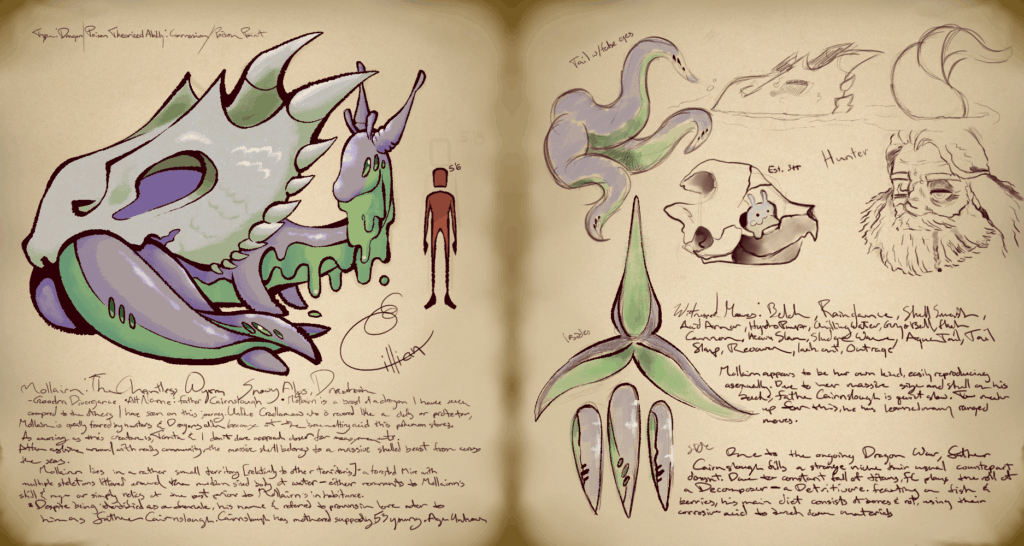 Type: Dragon/Poison Theorized Ability: Corrosion/Poison Point
5'6
Cillian
Mollairn: The Chantless Wyrm
- Goodra Divergence - Alt Name: Father Cairnslough. Mollairn is a breed of a dragon I have seen
compared to the others I have seen on this journey. Unlike
Mollairn is greatly feared by hunters & Dragons alike because of the bone melting acid this pokemon stores.
As amazing as this creature is, & I don't dare approach closer for measurements.
After asking around with nearby community, the massive skull belongs to a massive shelled beast from across
the seas.
Mollairn lies in a rather small territory [relatively to other territories] - a forested mire with
multiple skeletons littered around the medium sized body of water - either remnants to Mollairn's
skill & or simply relics at one put prior to Mollairn's inhabitance.
* Despite being identified as a female, his name & referred to pronouns in lore refer to
him as father - Cairnslough. Cairnslough has authored supposedly 53 young. Age Unknown
Tail w/ false eyes
Est. Jaw
Hunter
Insides
Witnessed Moves: Belch, Raindance, Shell Smash,
Acid Armor, Hydro Pump, Chilling Water, Gunk Shot, Flash
Cannon, Heavy Slam, Sludge Wave, Aqua Tail, Tail
Slap, Recover, Lash out, Outrage
Mollairn appears to be her own kind, easily reproducing
asexually. Due to her massive size and skull on his
back, Father Cairnslough is quite slow. To make
up for this, he has learned many ranged
moves.
Side
Due to the ongoing Dragon War, Father
Cairnslough fills a strange niche their usual counterpart
doesn't. Due to constant fall of titans, FC plays the roll of
a Decomposer - a Detritivore. feasting on fish &
berries, his main diet consists of bones & rot, using their
corrosive acid to break down materials